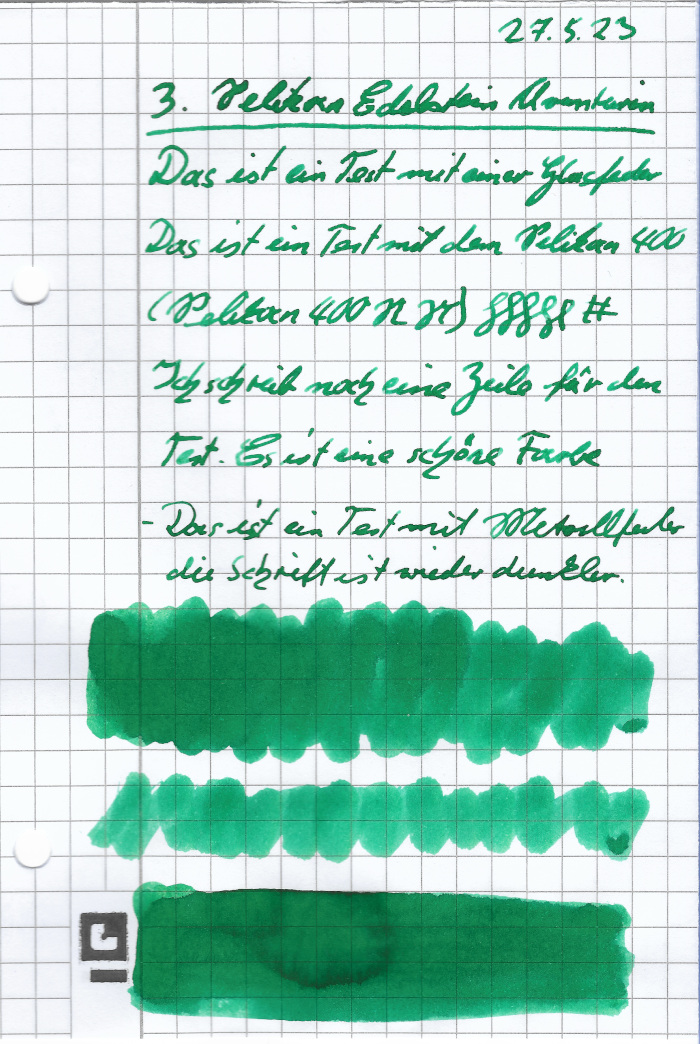 27.5.23
3. Pelikan Edelstein Aventurin
Das ist ein Test mit einer Glasfeder
Das ist ein Test mit dem Pelikan 400
(Pelikan 400 N N) §§§§§ #
Ich schreib noch eine Zeile für den
Test. Es ist eine schöne Farbe
- Das ist ein Test mit Metallfeder
die Schrift ist wieder dunkler.